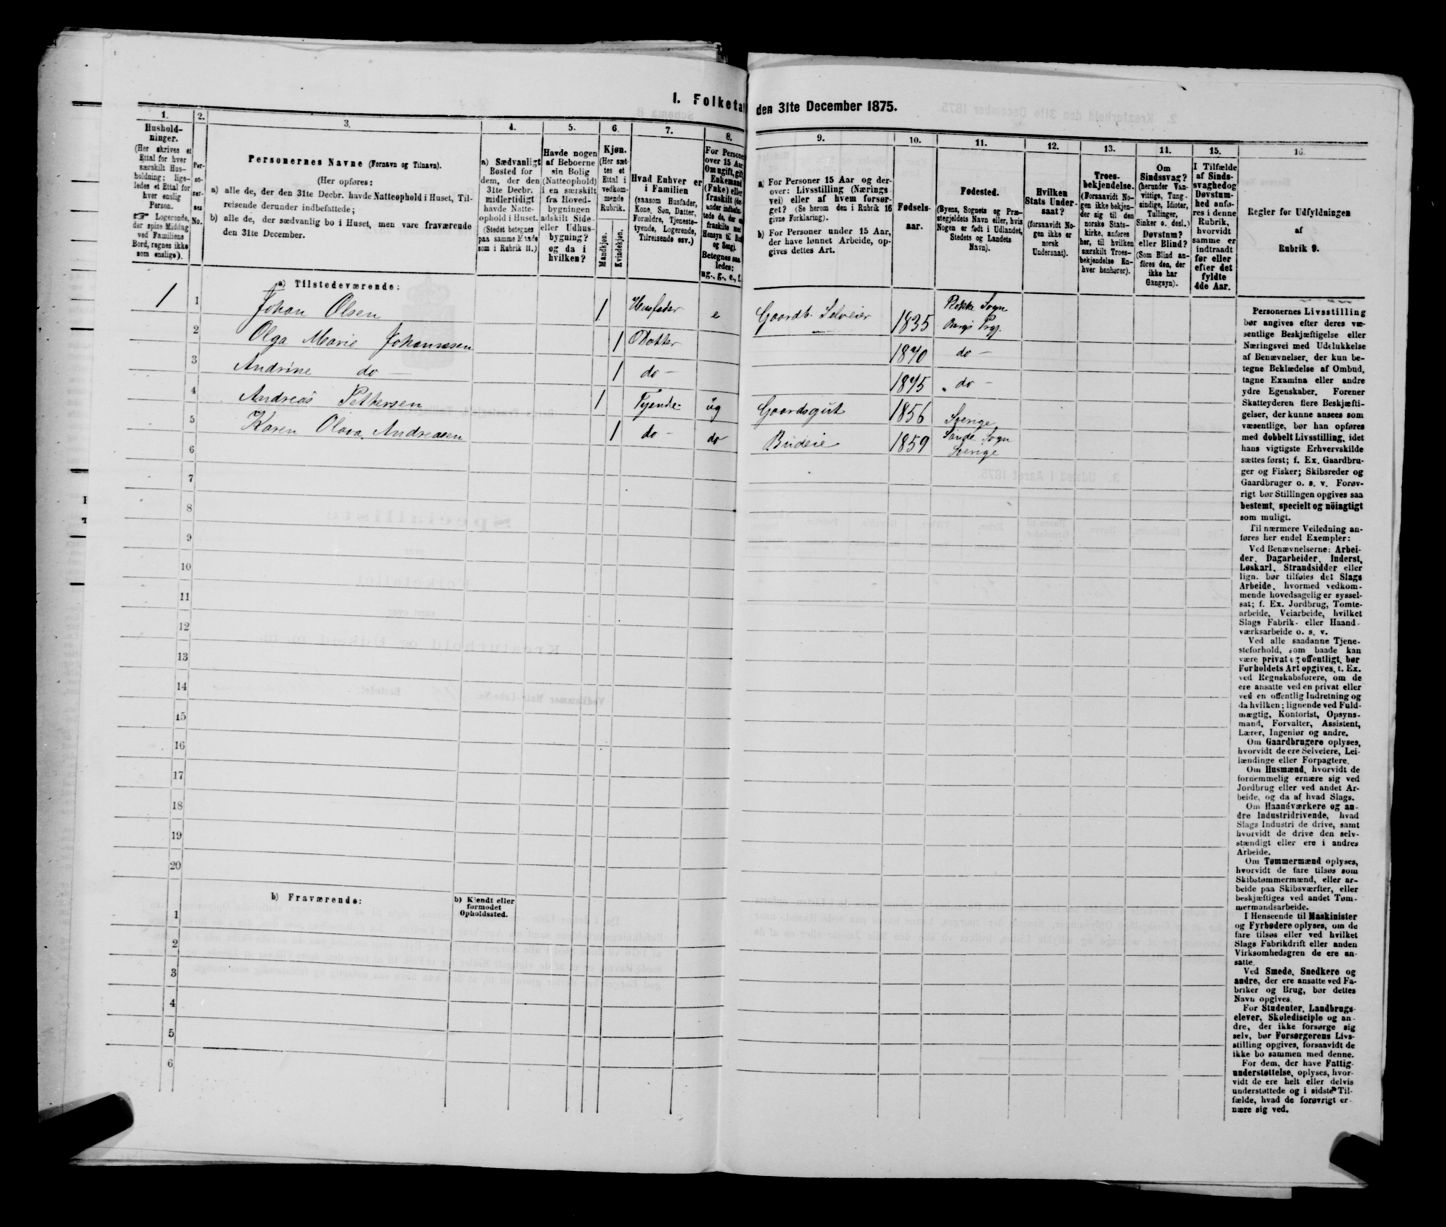 I. Folketa
den 31te December 1875.
1.
2.
3.
4.
5.
6.
7.
8.
9.
10.
11.
12.
13.
14.
15.
16.
Hushold-
ninger.
(Her skrives et
Ettal for hver
særskilt Hus-
holdning; lige-
ledes et Ettal for
hver enslig
Person.
☞ Logerende,
der spise Middag
ved Familiens
Bord, regnes ikke
som enslige).
Per-
so-
ner-
nes
No.
Personernes Navne (Fornavn og Tilnavn).
(Her opføres:
a) alle de, der den 31te Decbr. havde Natteophold i Huset, Til-
reisende derunder indbefattede;
b) alle de, der sædvanlig bo i Huset, men vare fraværende
den 31te December.
a) Sædvanligt
Bosted for
dem, der den
31te Decbr.
midlertidigt
havde Natte-
ophold i Huset.
(Stedet betegnes
paa samme Maade
som i Rubrik 11.)
Havde nogen
af Beboerne
sin Bolig
(Natteophold)
i en særskilt
fra Hoved-
bygningen
adskilt Side-
eller Udhus-
bygning?
og da i
hvilken?
Kjøn.
(Her sæt-
tes et
Ettal i
vedkom-
mende
Rubrik.
Mandkjøn.
Kvindekjøn.
Hvad Enhver er
i Familien
(saasom Husfader,
Kone, Søn, Datter,
Forældre, Tjeneste-
tyende, Logerende,
Tilreisende osv.)
For Persone
over 15 Aar
Om ugift, gift
Enkemand
(Enke) eller
fraskilt
Betegnes saa-
ledes:
ug., g., e., f.
a) For Personer 15 Aar og der-
over: Livsstilling (Nærings-
vei) eller af hvem forsør-
get? (Se herom den i Rubrik 16
givne Forklaring).
b) For Personer under 15 Aar,
der have lønnet Arbeide, op-
gives dettes Art.
Fødsels-
aar.
Fødested.
(Byens, Sognets og Præ-
stegjeldets Navn eller, hvis
Nogen er født i Udlandet,
Stedets og Landets
Navn).
Hvilken
Stats Under-
saat?
(forsaavidt No-
gen ikke er
norsk
Undersaat).
Troes-
bekjendelse.
(Forsaavidt No-
gen ikke bekjen-
der sig til den
norske Stats-
kirke, anføres
her, til hvilken
særskilt Troes-
bekjendelse En-
hver henhører).
Om
Sindssvag?
(herunder Van-
vittige, Tung-
sindige, Idioter,
Tullinger,
Sinker o. desl.)
Døvstum?
eller Blind?
(Som Blind an-
føres den, der
ikke har
Gangsyn).
I Tilfælde
af Sinds-
svaghed og
Døvstum-
hed anfø-
res i denne
Rubrik,
hvorvidt
samme er
indtraadt
før eller
efter det
fyldte
4de Aar.
Regler for Udfyldningen
af
Rubrik 9.
a) Tilstedeværende:
1 1 Johan Olsen 1 Husfader e Gaardb. Selveier 1835 Rokke Sogn
Bergs Prgj.
2 Olga Marie Johannesen 1 Datter 1870 do -
3 Andrine do 1 do - 1875 do -
4 Andreas Pettersen 1 Tyende ug Gaardsgut 1856
5 Karen Olava Andreasen 1 do - do Budeie 1859
6
7
8
9
10
11
12
13
14
15
16
17
18
19
20
b) Fraværende:
b) Kjendt eller
formodet
Opholdssted.
1
2
3
4
5
6
Personernes Livsstilling
bør angives efter deres væ-
sentlige Beskjæftigelse eller
Næringsvei med Udelukkelse
af Benævnelser, der kun be-
tegne Beklædelse af Ombud,
tagne Examina eller andre
ydre Egenskaber. Forener
Skatteyderen flere Beskjæfti-
gelser, der kunne ansees som
væsentlige, bør han opføres
med dobbelt Livsstilling, idet
hans vigtigste Erhvervskilde
sættes først; f. Ex. Gaardbru-
ger og Fisker; Skibsreder og
Gaardbruger o. s. v. Forøv-
rigt bør Stillingen opgives saa
bestemt, specielt og nöiagtigt
som muligt.
Til nærmere Veiledning an-
føres her endel Exempler:
Ved Benævnelserne: Arbei-
der, Dagarbeider, Inderst,
Løskarl, Strandsidder eller
lign. bør tilføies det Slags
Arbeide, hvormed vedkom-
mende hovedsagelig er syssel-
sat; f. Ex. Jordbrug, Tomte-
arbeide, Veiarbeide, hvilket
Slags Fabrik- eller Haand-
værksarbeide o. s. v.
Ved alle saadanne Tjene-
steforhold, som baade kan
være privat og offentligt, bør
Forholdets Art opgives, t. Ex.
ved Regnskabsførere, om de
ere ansatte ved en privat eller
ved en offentlig Indretning og
da hvilken; lignende ved Fuld-
mægtig, Kontorist, Opsyns-
mand, Forvalter, Assistent,
Lærer, Ingeniør og andre.
Om Gaardbrugere oplyses,
hvorvidt de ere Selveiere, Lei-
lændinge eller Forpagtere.
Om Husmænd, hvorvidt de
fornemmelig ernære sig ved
Jordbrug eller ved andet Ar-
beide, og da af hvad Slags.
Om Haandværkere og an-
dre Industridrivende, hvad
Slags Industri de drive, samt
hvorvidt de drive den selv-
stændigt eller ere i andres
Arbeide.
Om Tømmermænd oplyses,
hvorvidt de fare tilsøs som
Skibstømmermænd, eller ar-
beide paa Skibsværfter, eller
beskjæftiges ved andet Tøm-
mermandsarbeide.
I Henseende til Maskinister
og Fyrbødere oplyses, om de
fare tilsøs eller ved hvilket
Slags Fabrikdrift eller anden
Virksomhedsgren de ere an-
satte.
Ved Smede, Snedkere og
andre, der ere ansatte ved Fa-
briker og Brug, bør dettes
Navn opgives.
For Studenter, Landbrugs-
elever, Skoledisciple og an-
dre, der ikke forsørge sig
selv, bør Forsørgerens Livs-
stilling opgives, forsaavidt de
ikke bo sammen med denne.
For dem, der have Fattig-
understøttelse, oplyses, hvor-
vidt de ere helt eller delvis
understøttede og i sidste Til-
fælde, hvad de forøvrigt er-
nære sig ved.